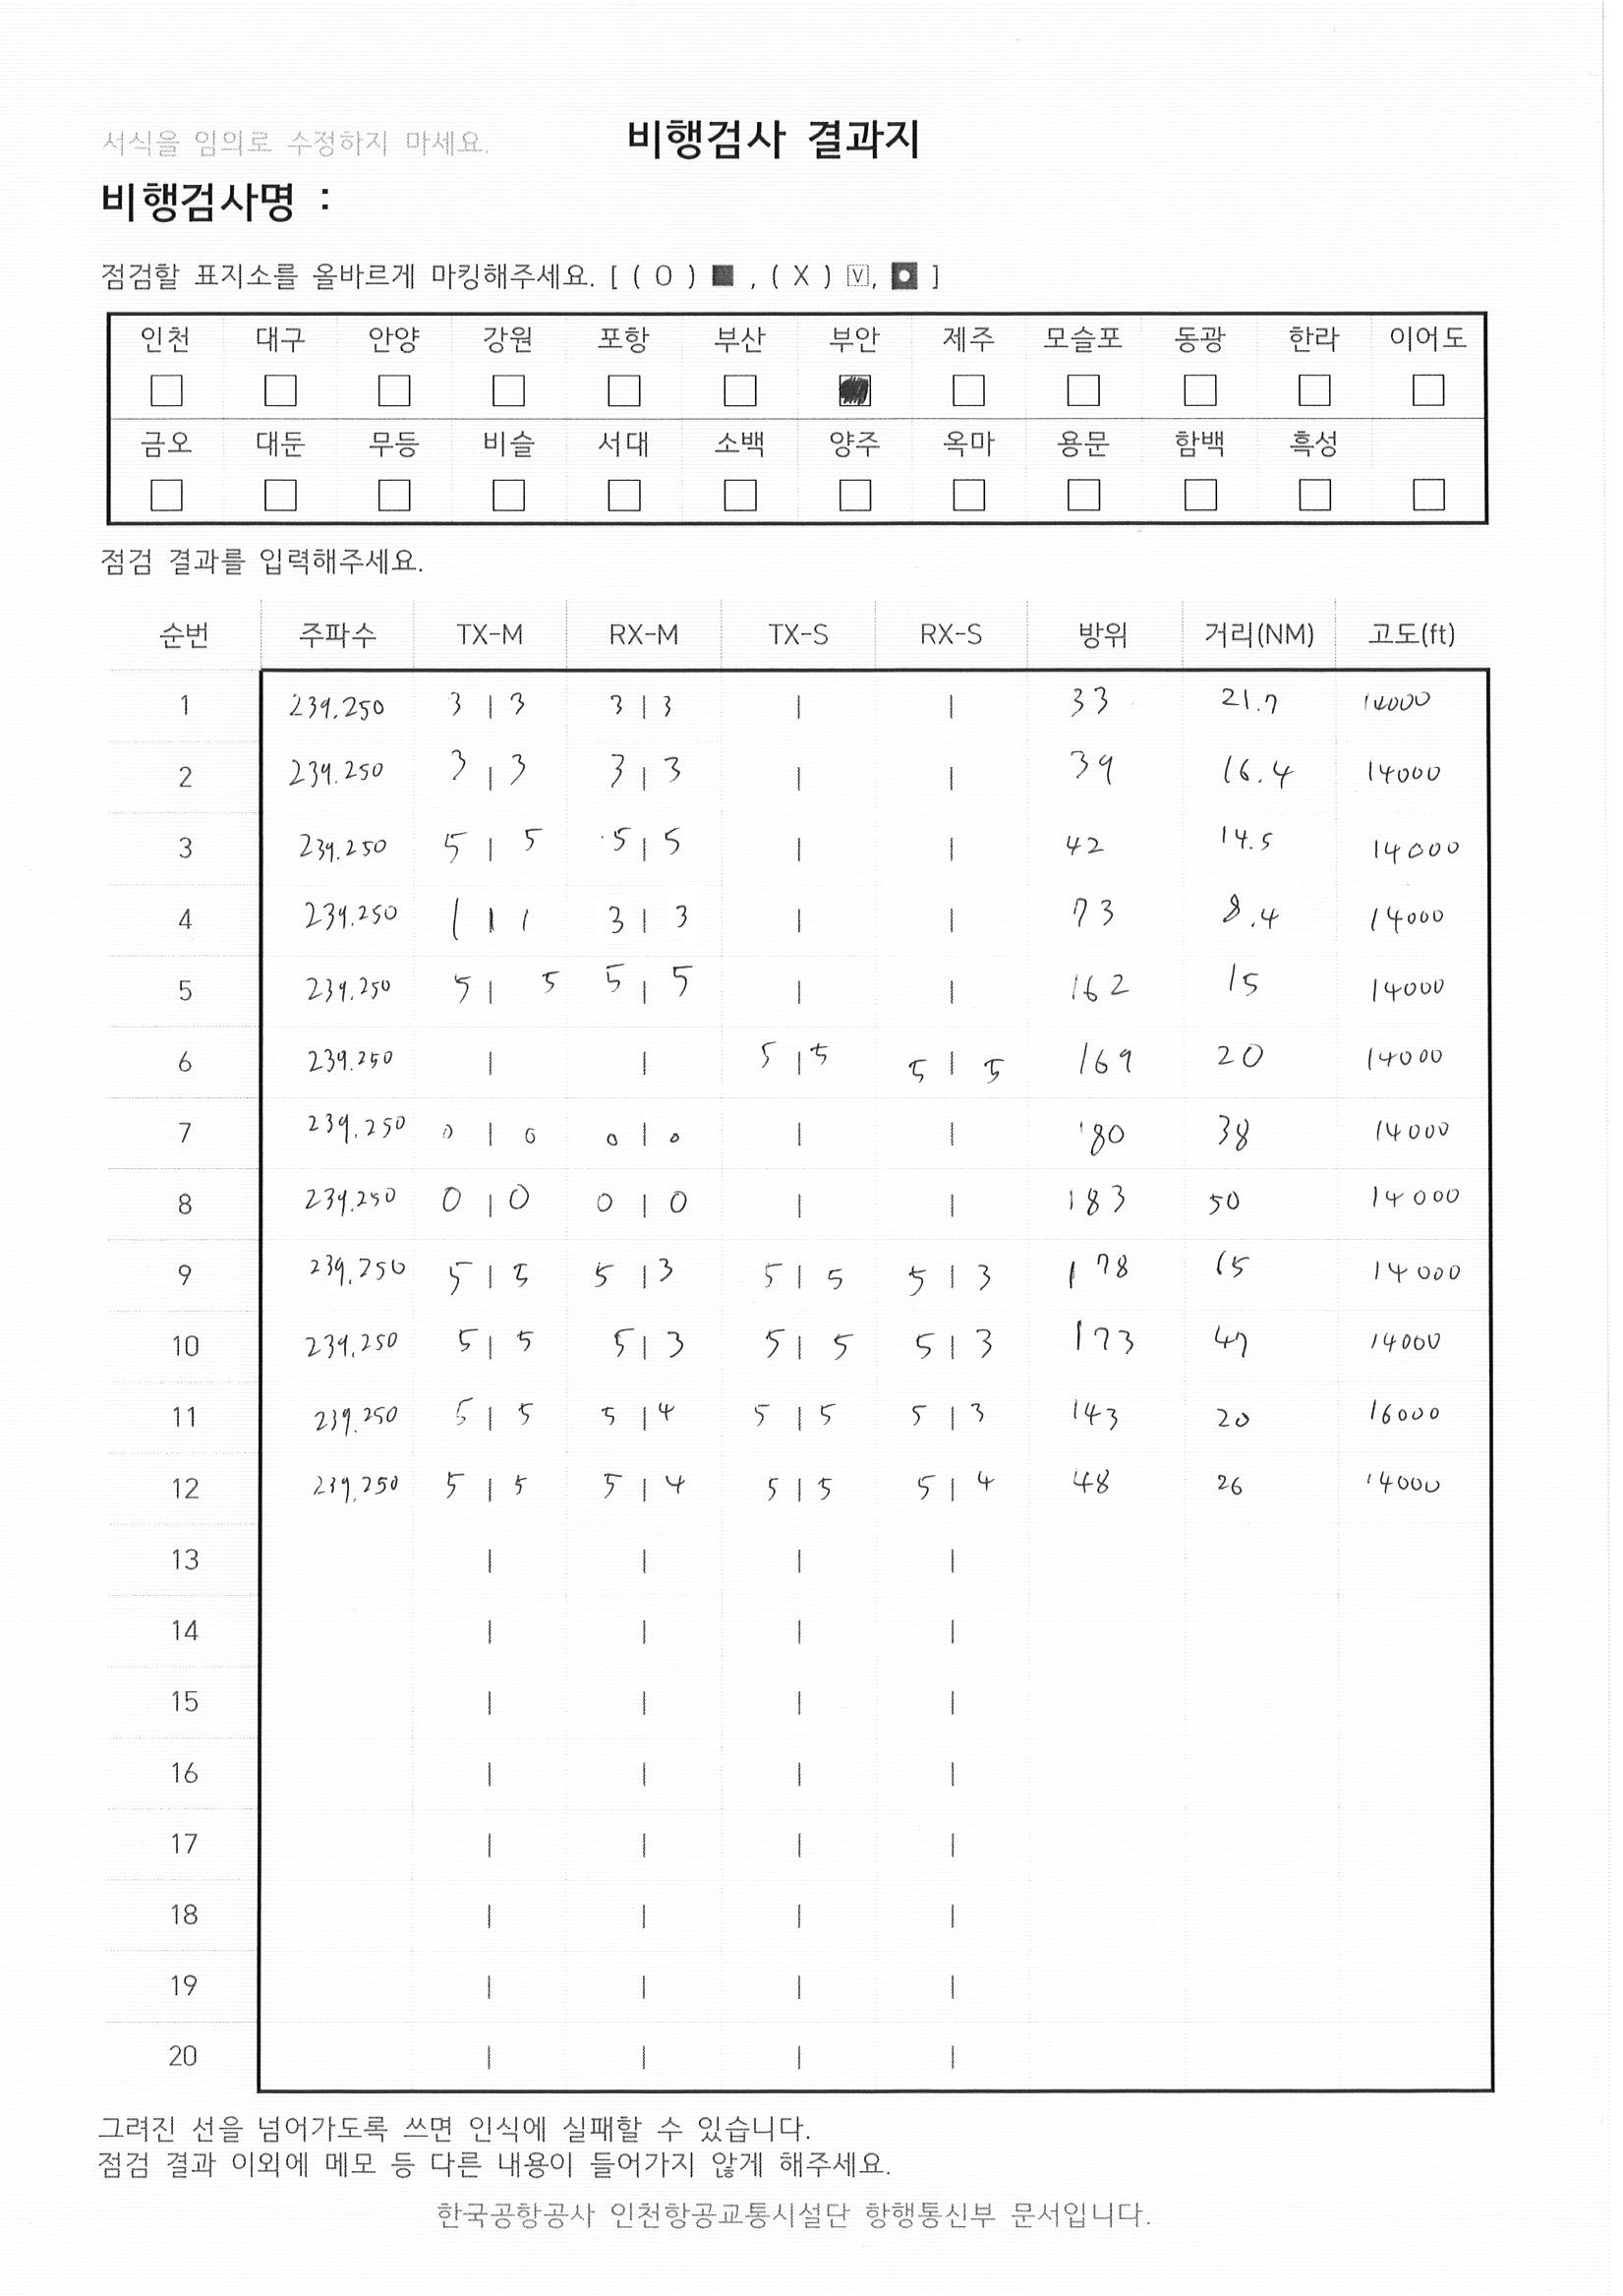 서식을 임의로 수정하지 마세요.
비행검사 결과지
비행검사명 :
점검할 표지소를 올바르게 마킹해주세요. [ ( O ) ■ , ( X ) ☑, ◘ ]
인천 대구 안양 강원 포항 부산 부안 제주 모슬포 동광 한라 이어도
금오 대둔 무등 비슬 서대 소백 양주 옥마 용문 함백 흑성
점검 결과를 입력해주세요.
순번 주파수 TX-M RX-M TX-S RX-S 방위 거리(NM) 고도(ft)
1 239.250 3 | 3 3 | 3 | | 33 21.7 14000
2 239.250 3 | 3 3 | 3 | | 39 16.4 14000
3 239.250 5 | 5 5 | 5 | | 42 14.5 14000
4 239.250 1 | 1 3 | 3 | | 73 8.4 14000
5 239.250 5 | 5 5 | 5 | | 162 15 14000
6 239.250 | | 5 | 5 5 | 5 169 20 14000
7 239.250 0 | 0 0 | 0 | | 180 38 14000
8 239.250 0 | 0 0 | 0 | | 183 50 14000
9 239.250 5 | 5 5 | 3 5 | 5 5 | 3 178 65 14000
10 239.250 5 | 5 5 | 3 5 | 5 5 | 3 173 47 14000
11 239.250 5 | 5 5 | 4 5 | 5 5 | 3 143 20 16000
12 239.250 5 | 5 5 | 4 5 | 5 5 | 4 48 26 14000
13 | | | |
14 | | | |
15 | | | |
16 | | | |
17 | | | |
18 | | | |
19 | | | |
20 | | | |
그려진 선을 넘어가도록 쓰면 인식에 실패할 수 있습니다.
점검 결과 이외에 메모 등 다른 내용이 들어가지 않게 해주세요.
한국공항공사 인천항공교통시설단 항행통신부 문서입니다.